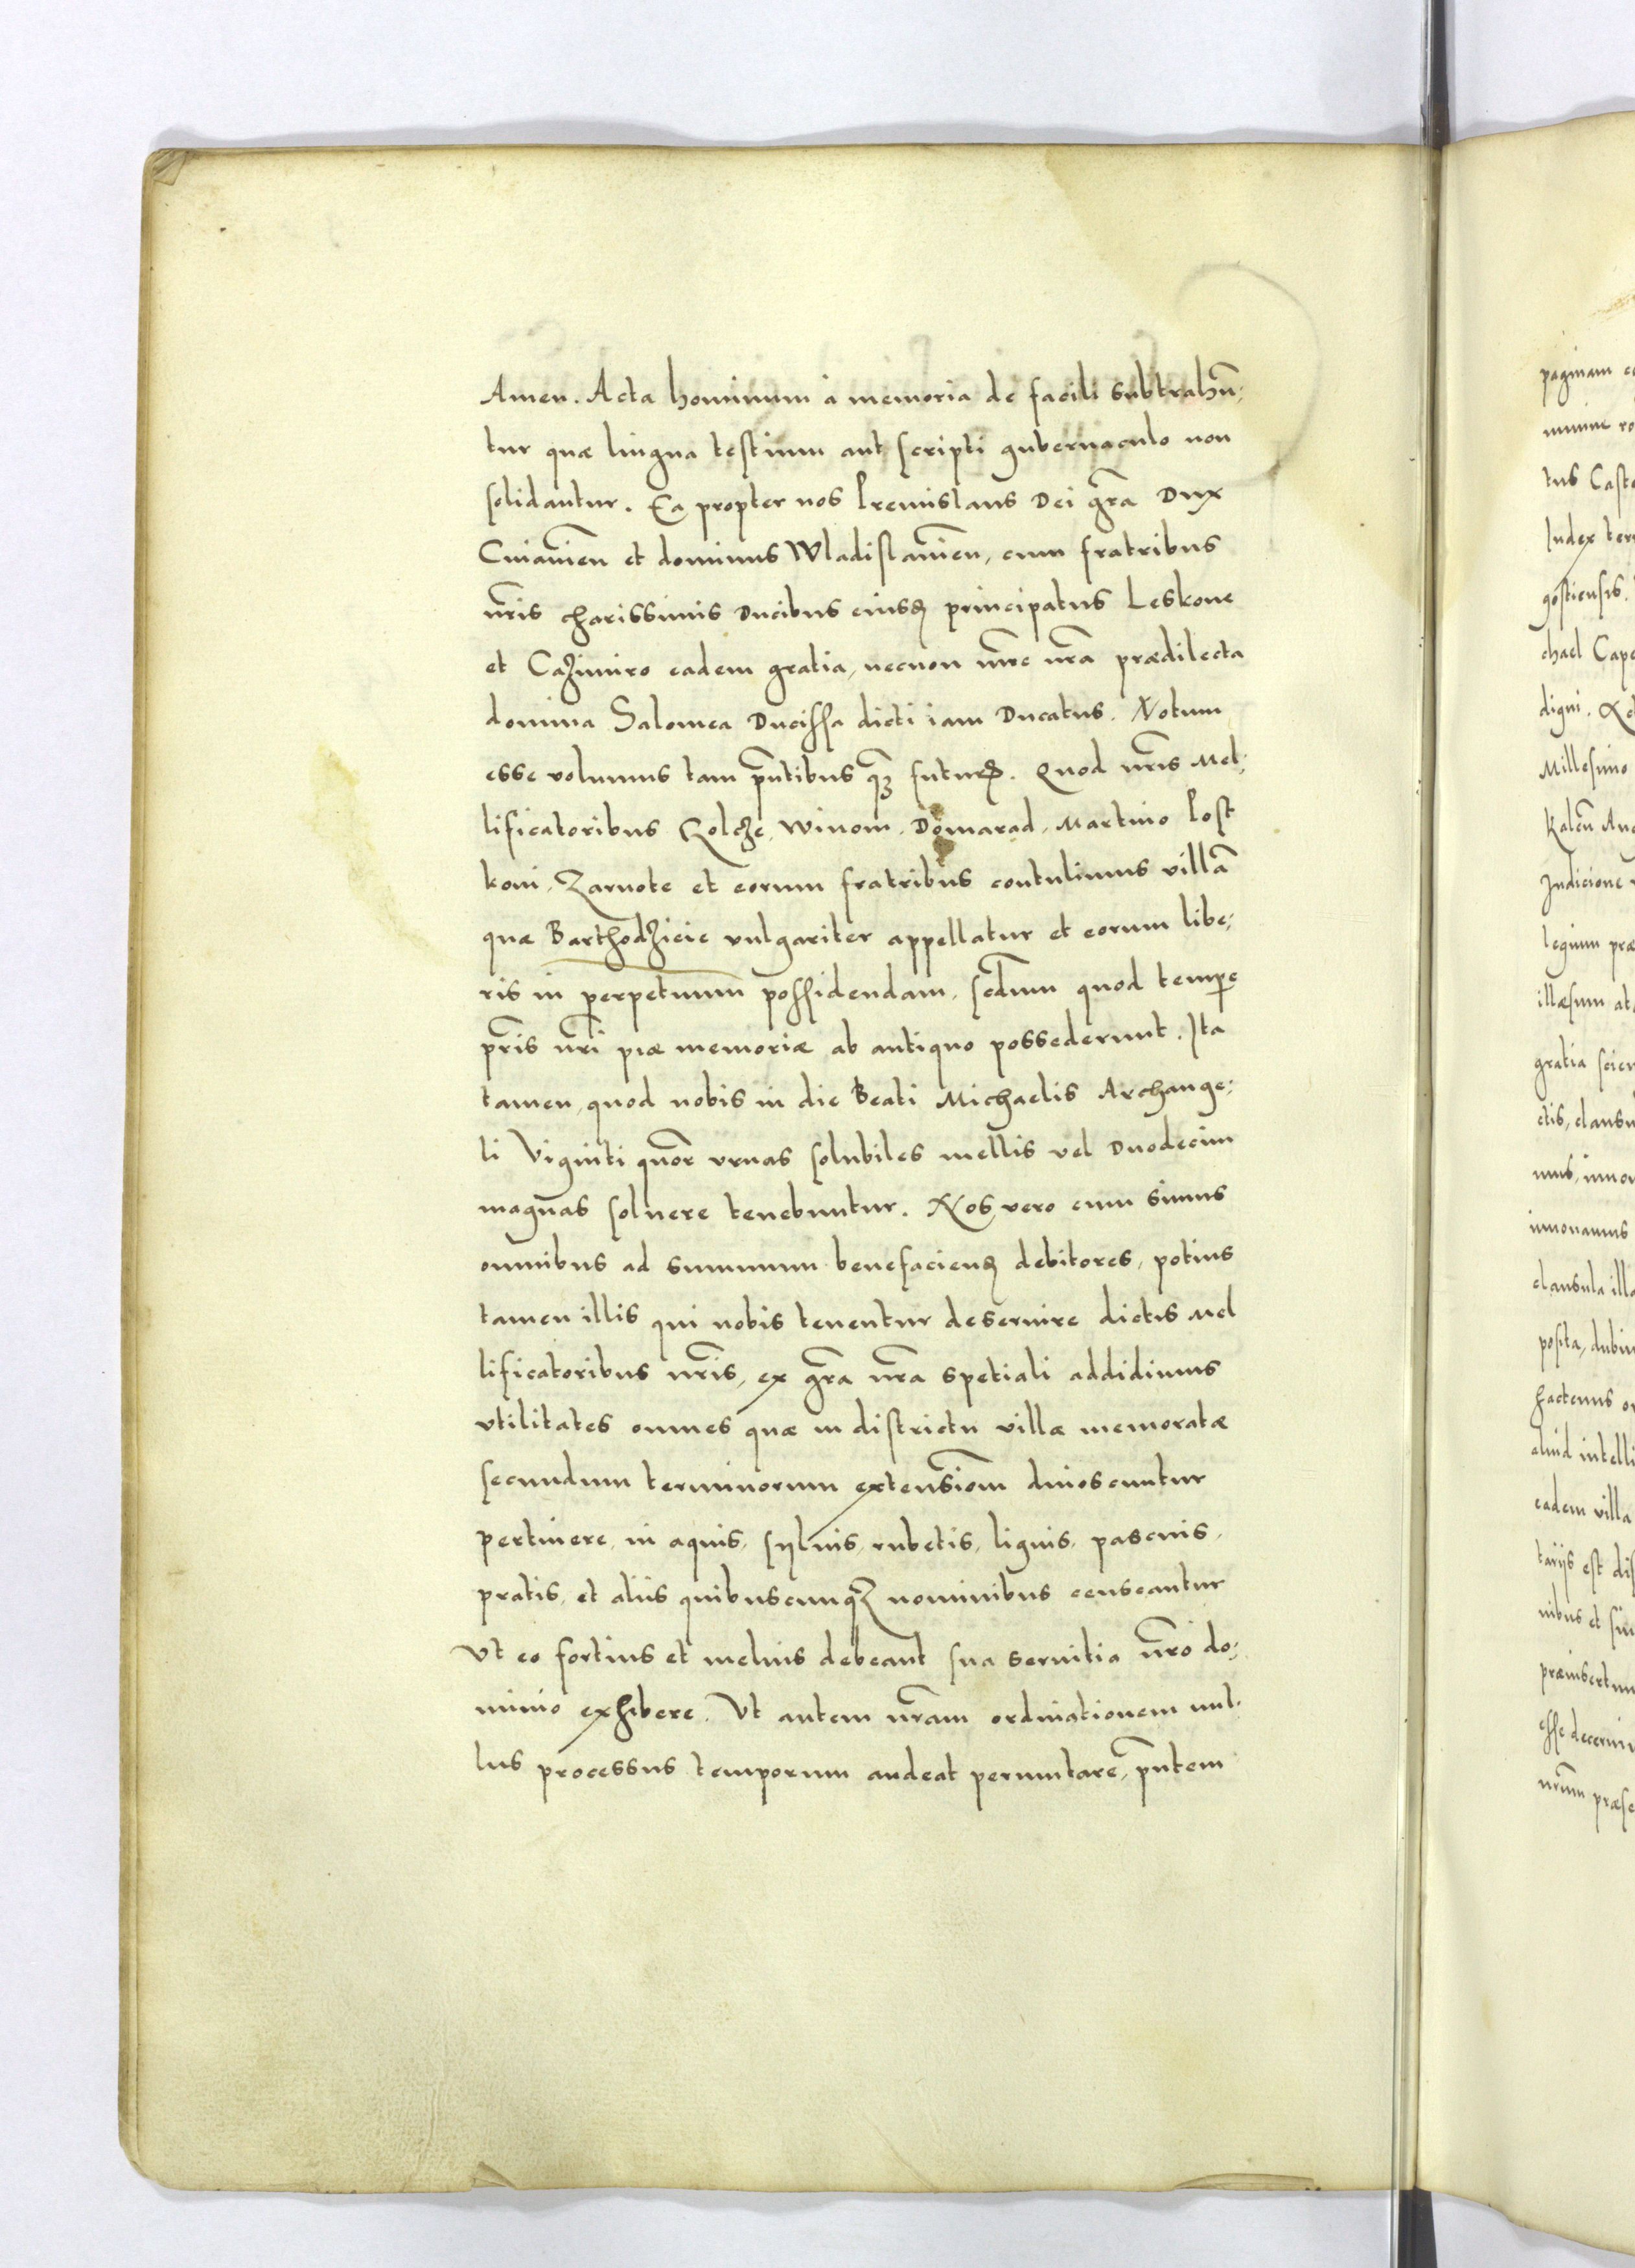 Amen. Acta hominum à memoria de facili subtrahũ;
tur quæ lingua testium aut scripti gubernaculo non
solidantur. Ea propter nos Premislaus Dei grã Dux
Cuiauien̄ et dominus Wladislauien̄, cum fratribus
nr̃is charissimis Ducibus eiusꝶ principatus Leskone
et Cazimiro eadem gratia, necnon mr̃e nr̃a prædilecta
domina Salomea Ducissa dicti iam Ducatus. Notum
esse volumus tam pñtibus qȝ̃ futurꝶ. Quod nr̃is Mel;
lificatoribus Golcze, Winom, Domarad, Martino Post
koni, Zarnote et eorum fratribus contulimus villã
quæ Barthodzieie vulgariter appellatur et eorum libe;
ris in perpetuum possidendam, scd̃um quod tempe
pr̃is nr̃i piæ memoriæ ab antiquo possederunt. Ita
tamen, quod nobis in die Beati Michaelis Archange;
li Viginti quor̃ vrnas solubiles mellis vel Duodecim
magnas soluere tenebuntur. Nos vero cum simus
omnibus ad summum benefacienꝶ debitores, potius
tamen illis qui nobis tenentur deseruire dictis Mel
lificatoribus nr̃is, ex grã nr̃a spetiali addidimus
vtilitates omnes quæ in districtu villæ memoratæ
secundum terminorum extensiom̃ dinoscuntur
pertinere, in aquis, syluis, rubetis, lignis, pascuis,
pratis, et alijs quibuscunqȝ nominibus censeantur
Vt eo fortius et melius debeant sua seruitia nr̃o do;
minio exhibere. Vt autem nr̃am ordinationem nul;
lus processus temporum audeat permutare, pñtem
paginam
tus
Iudex
gostiensis.
chael
digni.
Millesimo
Kalen̄
Indicione
legium
illæsum
gratia
ctis,
innouamus
clausula
posita,
hactenus
aliud
eadem villa
tarijs est
nibus et
esse